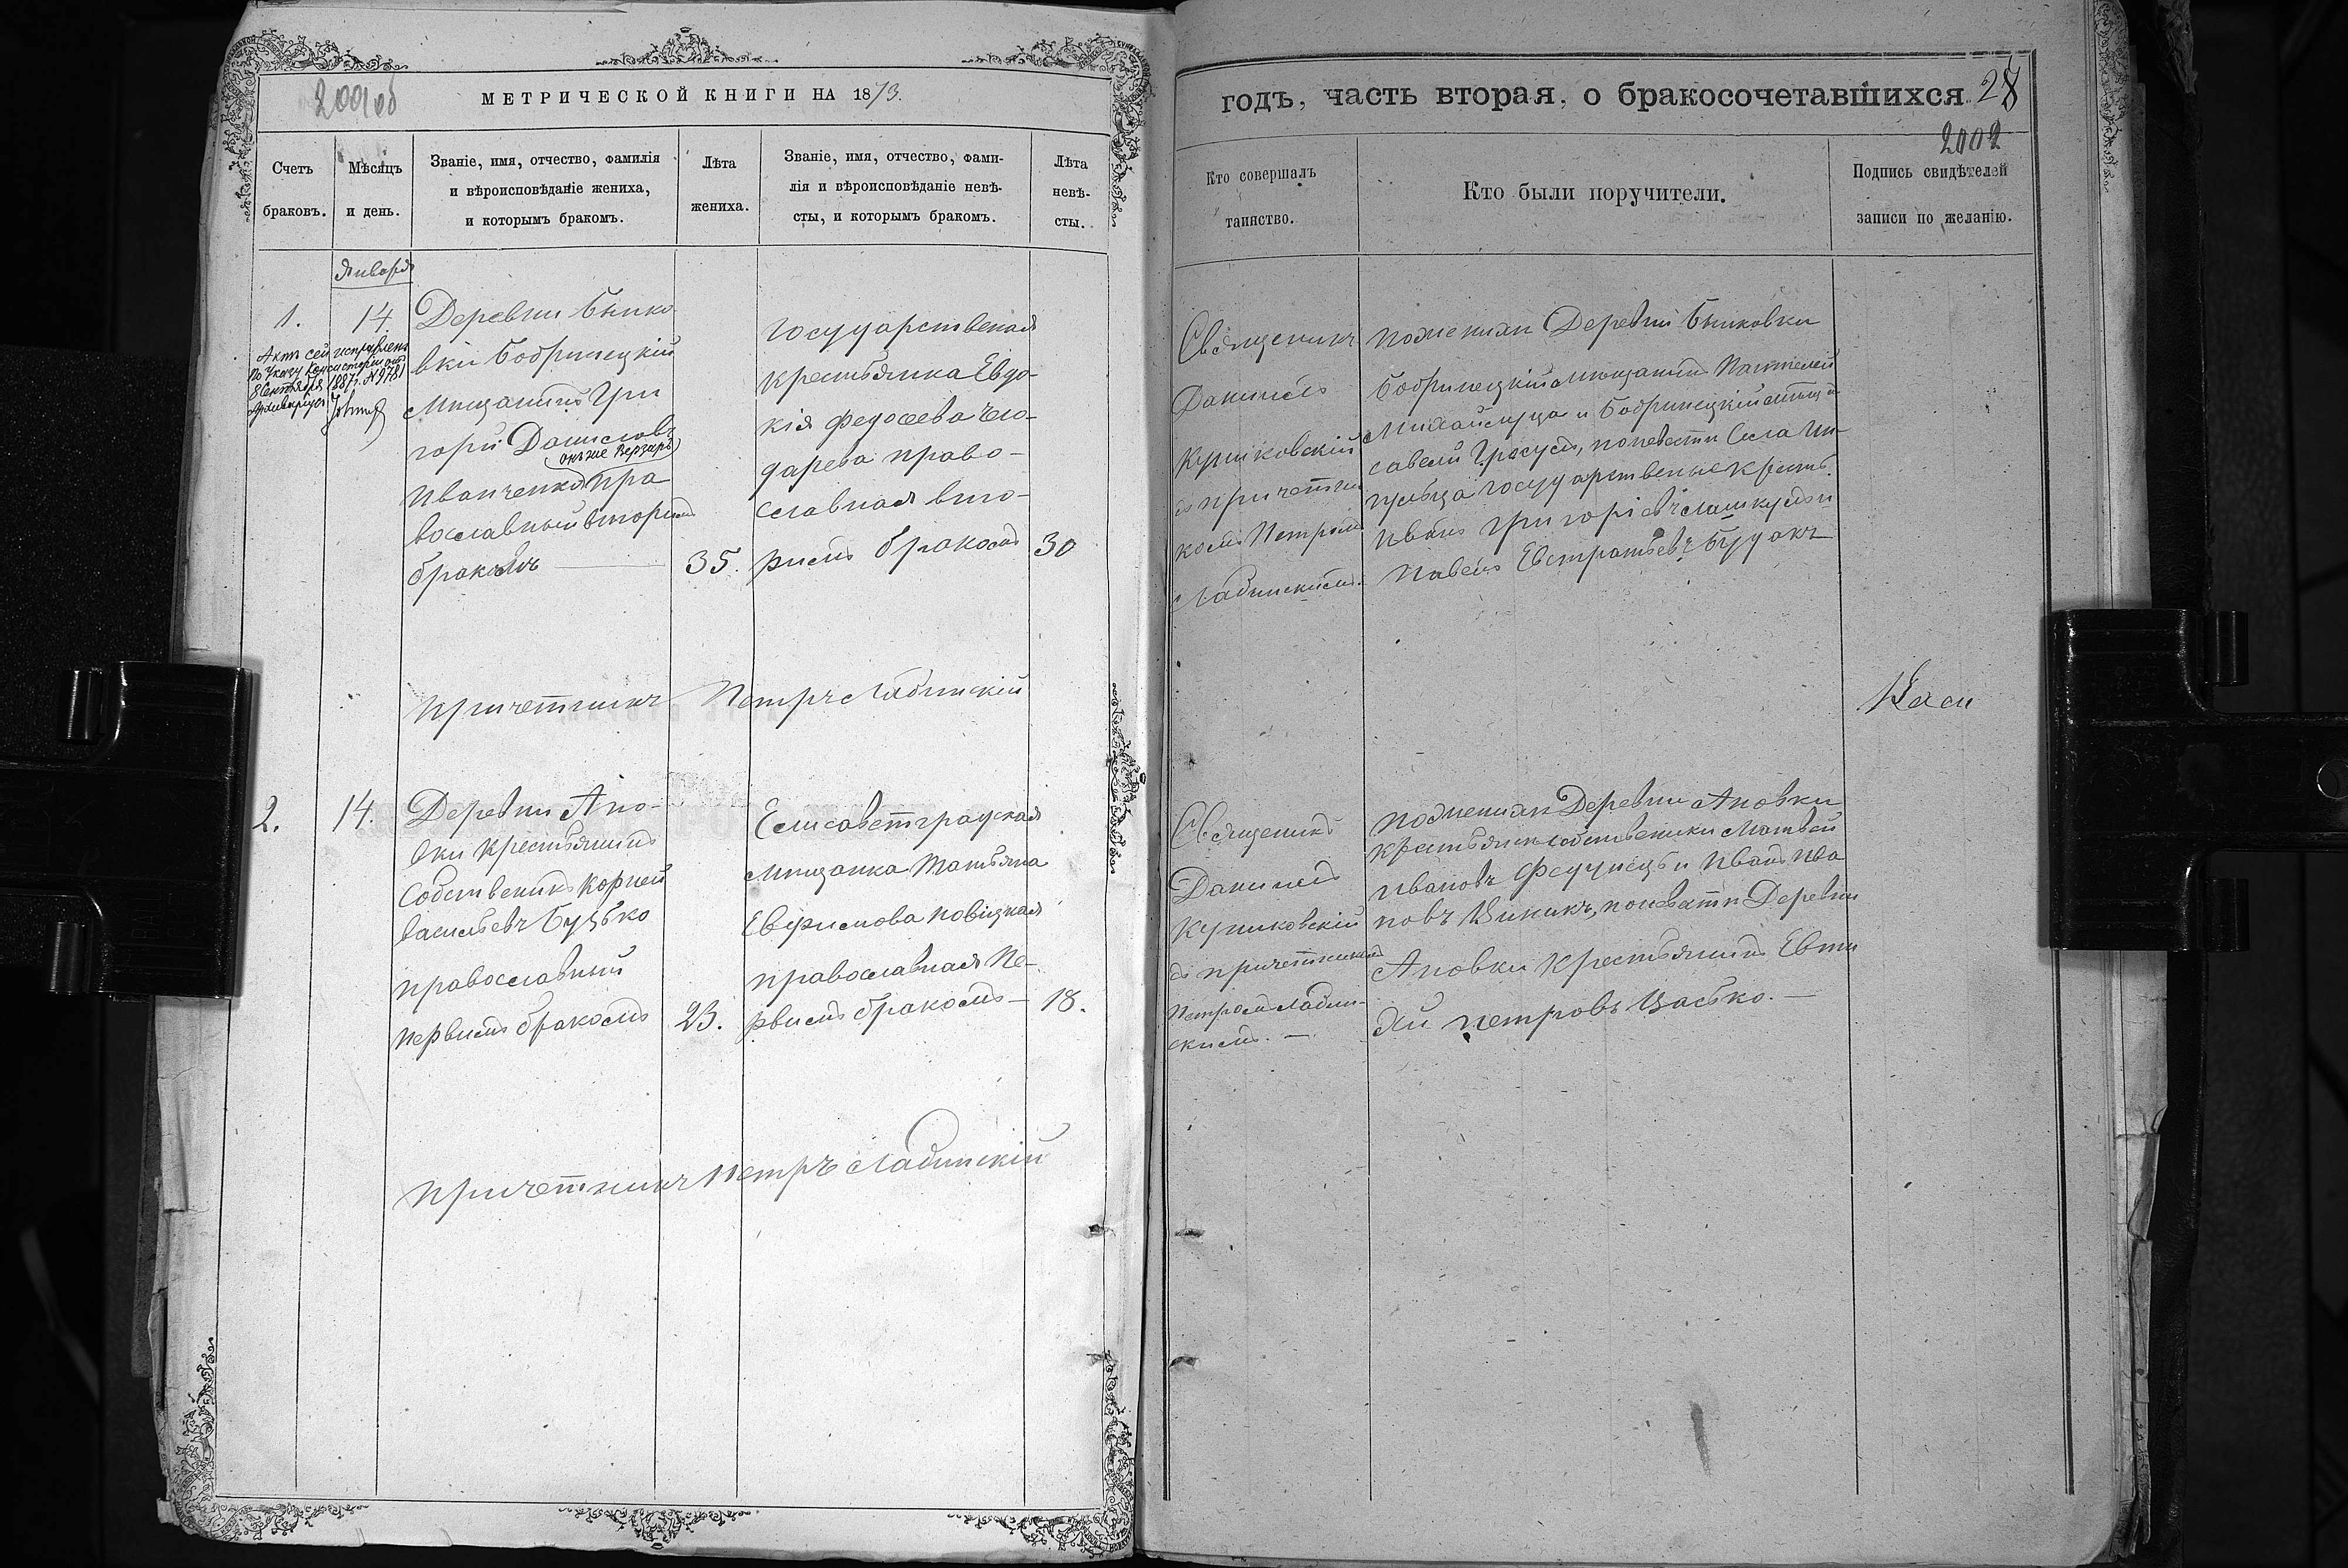 2001об
МЕТРИЧЕСКОЙ КНИГИ НА 1873.
Счетъ браковъ.
Мѣсяцъ и день.
Званіе, имя, отчество, фамилія
и вѣроисповѣданіе жениха,
и которымъ бракомъ.
Лѣта
жениха.
Званіе, имя, отчество, фами-
лія и вѣроисповѣданіе невѣ-
сты, и которымъ бракомъ.
Лѣта
невѣ-
сты.
Января
1.
14.
Актъ сей исправленъ
по указу Консисторіи отъ
8 Сентября 1887 г. № 9781
Архиваріусъ
Деревни Быко
вки Бобринецкій
Мищанинъ Гри
горій Даниловъ
онъ же Верзаръ
Иванченко Пра
вославный вторымъ
бракомъ
35.
Государственая
крестьянка Евдо-
кія Федосеева Чео-
дарева право-
славная вто-
рымъ бракомъ
30
Причетникъ Петръ Лабинскій
2.
14.
Деревни Ано-
вки крестьянинъ
Собственикъ Корней
Васильевъ Буцько
православный
первымъ бракомъ
23.
Елисаветградская
Мищанка Татьяна
Евфимова Новицкая
православная Пе-
рвымъ бракомъ
18.
Причетникъ Петръ Лабинскій
годъ, часть вторая, о бракосочетавшихся
28
2002
Кто совершалъ
таинство.
Кто были поручители.
Подпись свидѣтелей
записи по желанію.
Священикъ
Даниилъ
Куликовскій
съ причетни
комъ Петромъ
Лабинскимъ.
поженихи Деревни Быковки
Бобринецкій Мищанинъ Пантелей
и Бобринецкій мищ
Савелій Гросулъ, поневести Села Ин-
гульца Государственые крестья
Иванъ Григоріевъ и
Павелъ Евстратьевъ Будакъ
Священикъ
Даниилъ
Куликовскій
съ причетникомъ
Петромъ Лабин-
скимъ. —
поженихи Деревни Ановки
крестьяне собственики Матвей
Ивановъ Федунецъ и Иванъ Ива
новъ поневести Деревни
Ановки крестьянинъ Евти
хій Петровъ Цасько. —